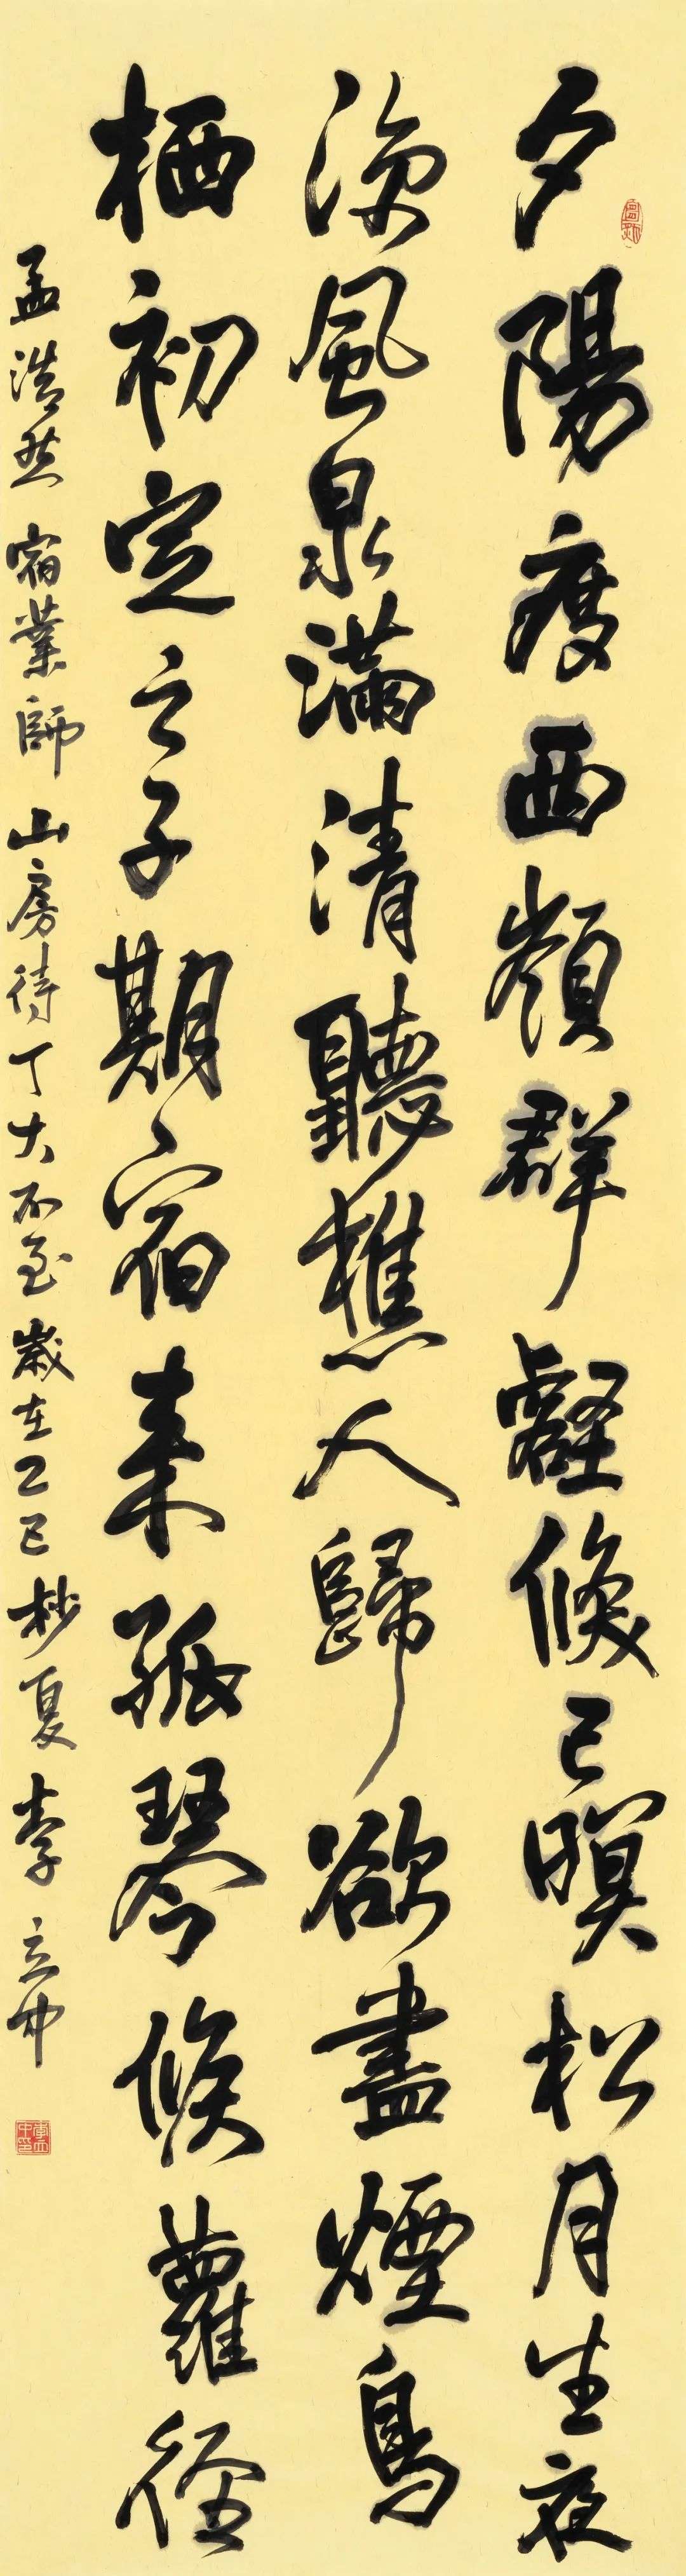 夕陽度西嶺群壑倏已暝松月生夜
涼風泉滿清聽樵人歸欲盡煙鳥
栖初定之子期宿来孤琴候蘿徑
孟浩然宿業師山房待丁大不至歲在乙巳杪夏李立中